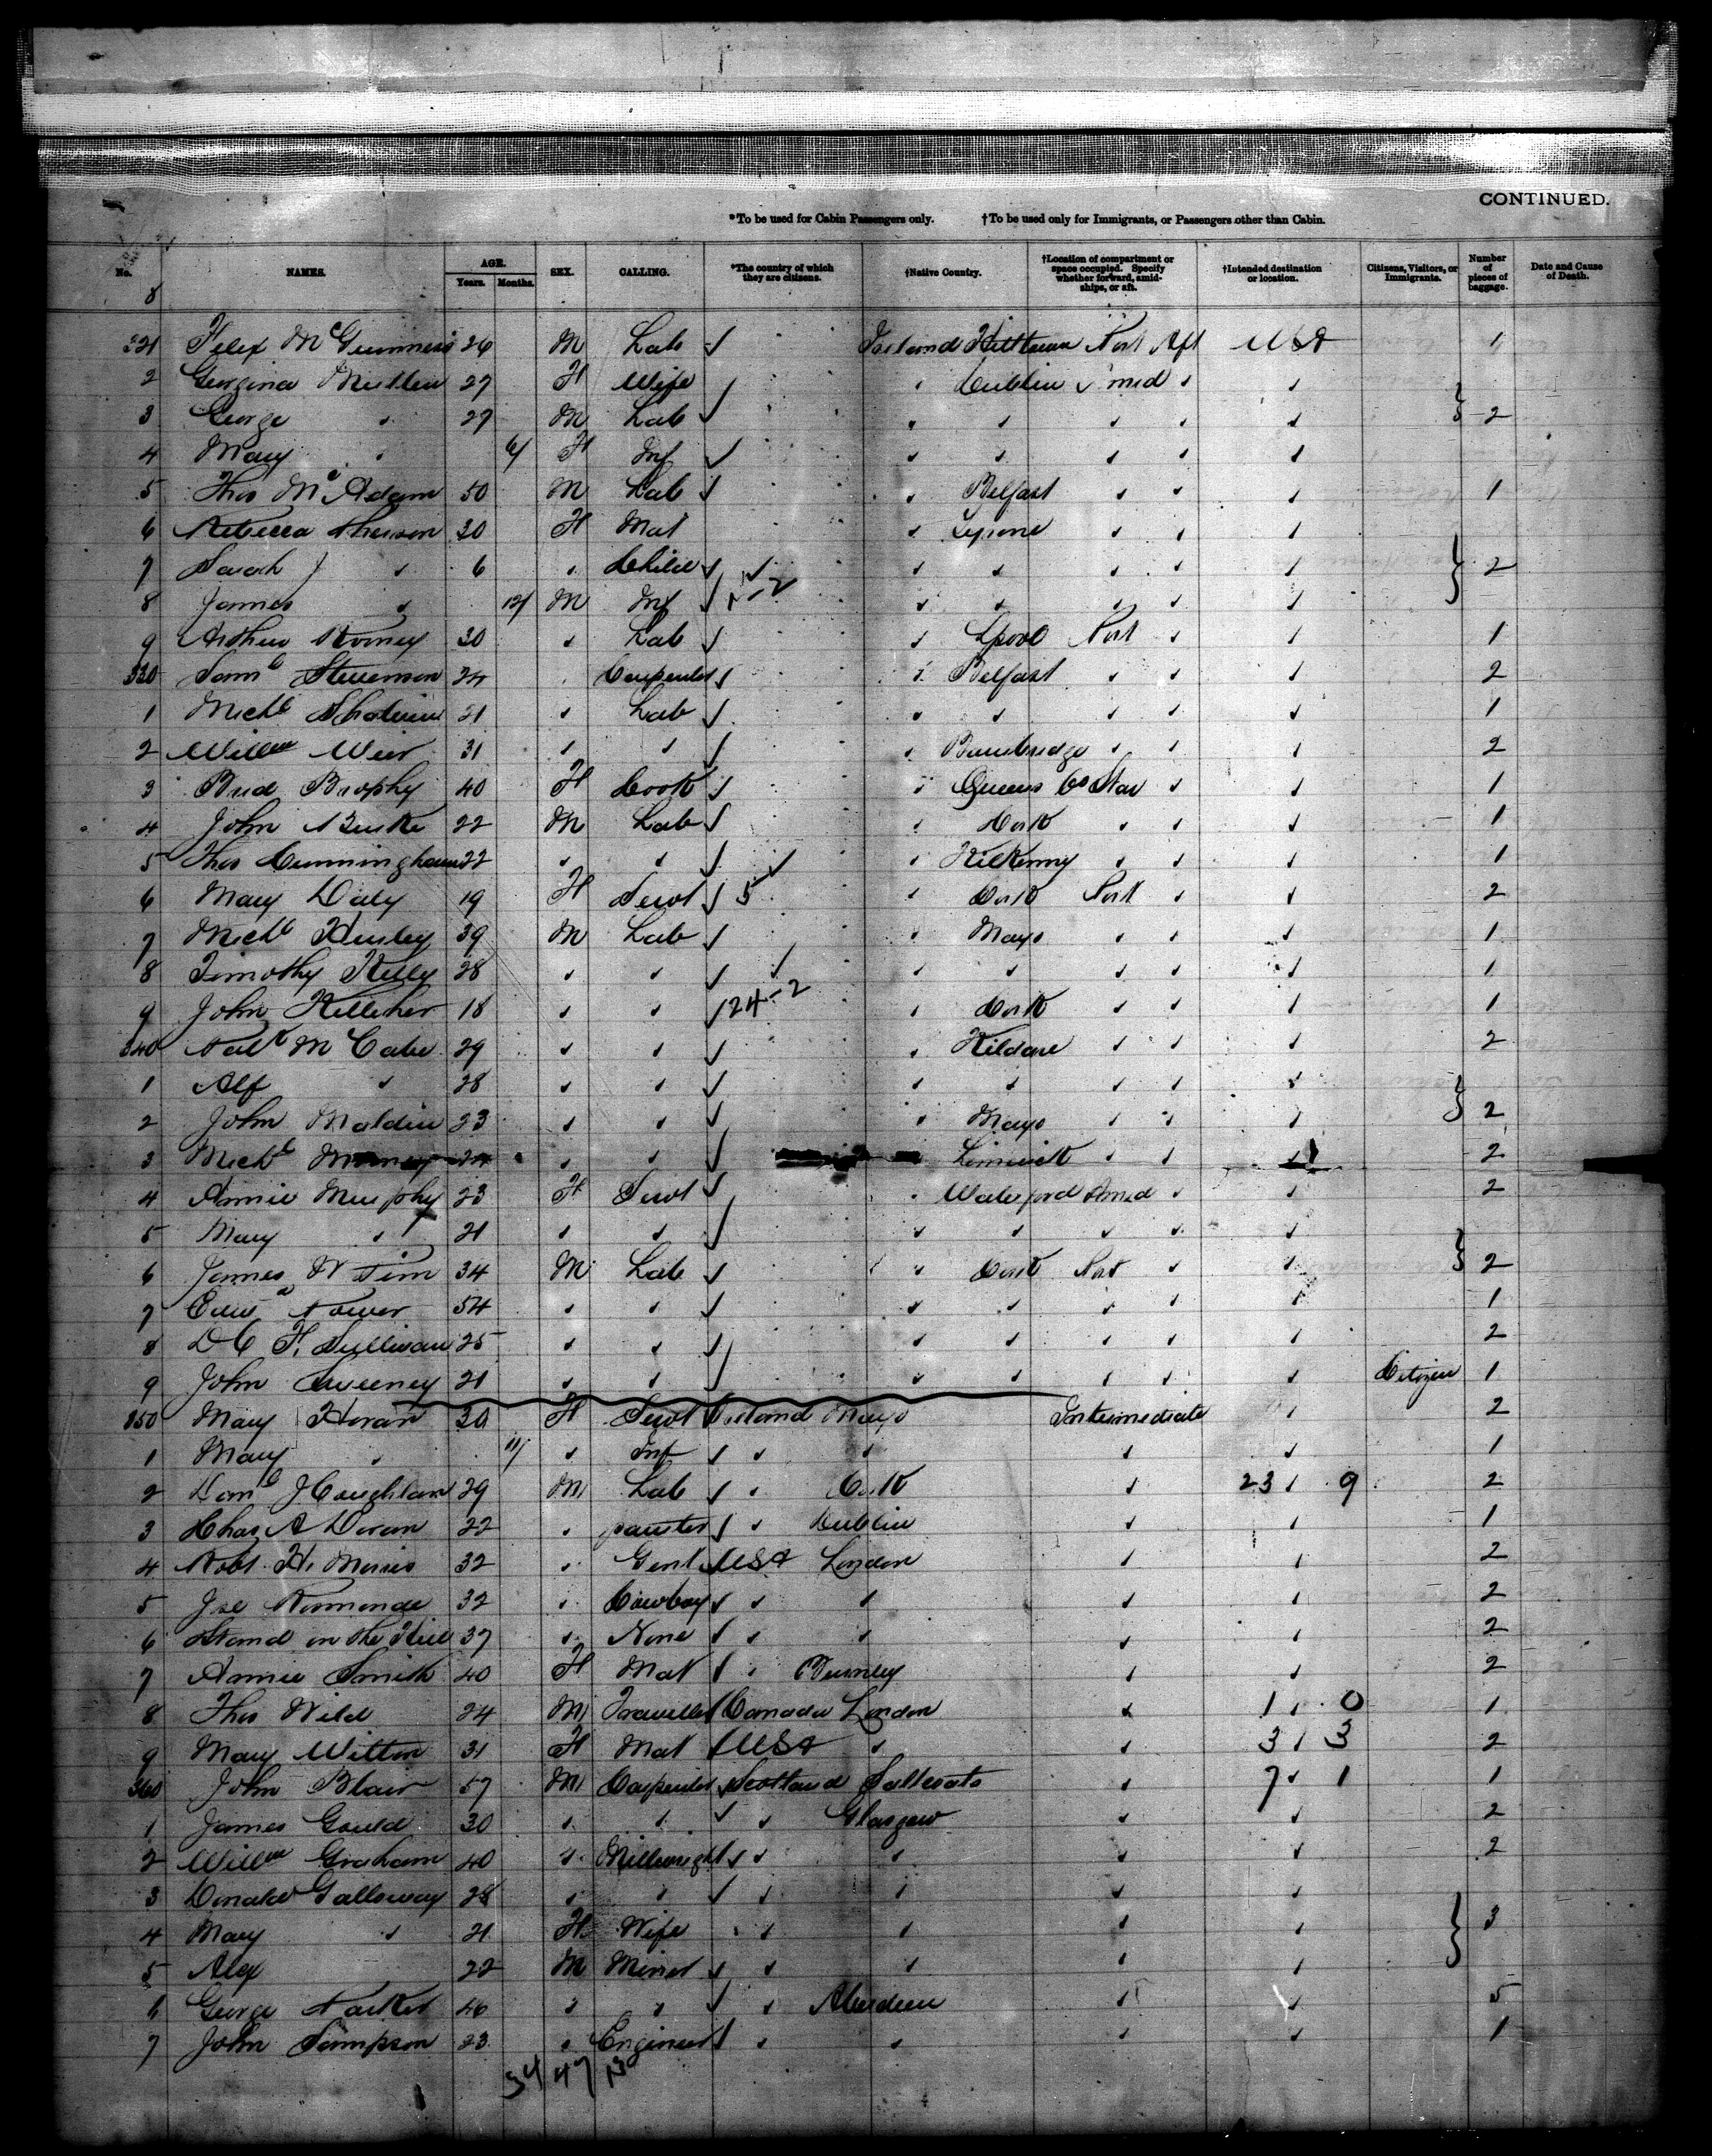 CONTINUED.
*To be used for Cabin Passengers only. †To be used only for Immigrants, or Passengers other than Cabin.
No. NAMES. AGE. Years. Months. SEX. CALLING. *The country of which they are citizens. †Native Country. †Location of compartment or space occupied. Specify whether forward, amidships, or aft. †Intended destination or location. Citizens, Visitors, or Immigrants. Number of pieces of baggage. Date and Cause of Death.
8
321 Felix McGuinness 26 M Lab Ireland Port Aft USA 1
2 Georgina Mullen 27 F Wife " Dublin " mid " "
3 George " 27 M Lab " " " " " 2
4 Mary " 6/ F Inf " " " " "
5 Thos McAdam 50 M Lab " Belfast " " " 1
6 Rebecca 30 F Mat " Tyrone " " "
7 Sarah J " 6 " Child " " " " " 2
8 James " 12/ M Inf " " " " "
9 Arthur Rooney 30 " Lab " Lpool Port " " 1
330 Saml Stevenson 24 " Carpenter " Belfast " " " 2
1 Michl 21 " Lab " " " " " 1
2 Willm Weir 31 " " " Banbridge " " " 2
3 Brid Brophy 40 F Cook " Queens Co Star " " 1
4 John Burke 22 M Lab " Cork " " " 1
5 Thos Cunningham 22 " " " Kilkenny " " " 1
6 Mary Daly 19 F Servt 5 " Cork Port " " 2
7 Michl Hurley 39 M Lab " Mayo " " " 1
8 Timothy Kelly 28 " " " " " " " 1
9 John Kelleher 18 " " 24-2 " Cork " " " 1
340 Patk McCabe 29 " " " Kildare " " " 2
1 Alf " 28 " " " " " " "
2 John Maldin 23 " " " Mayo " " " 2
3 Michl 24 " " " Limerick " " " 2
4 Annie Murphy 23 F Servt " Waterford Amid " " 2
5 Mary " 21 " " " " " " "
6 James 34 M Lab " Cork Port " " 2
7 Edwd Power 54 " " " " " " " 1
8 D C F. Sullivan 25 " " " " " " " 2
9 John Sweeney 21 " " " " " " " Citizen 1
350 Mary Horan 30 F Servt Ireland Mayo Intermediate " 2
1 Mary " 11/ " Inf " " " " 1
2 Danl J Coughlan 29 M Lab " Cork " 23 " 9 2
3 Chas A Doran 22 " painter " Dublin " " 1
4 Robt H. Morris 32 " Gent USA London " " 2
5 Joe 32 " Cowboy " " " " 2
6 Stand on the Hill 37 " None " " " " 2
7 Annie Smith 40 F Mat " Burnley " " 2
8 Thos Wild 24 M Traveller Canada London " 1 " 0 1
9 Mary Witton 31 F Mat USA " " 3 " 3 2
360 John Blair 57 M Carpenter Scotland Saltcoats " 7 " 1 1
1 James Gould 30 " " " Glasgow " " 2
2 Willm Graham 40 " Millwright " " " " 2
3 Donald Galloway 28 " " " " " "
4 Mary " 21 F Wife " " " " 3
5 Alex 22 M Miner " " " "
6 George Parker 46 " " " Aberdeen " " 5
7 John Sampson 23 " Engineer " " " " 1
34 47